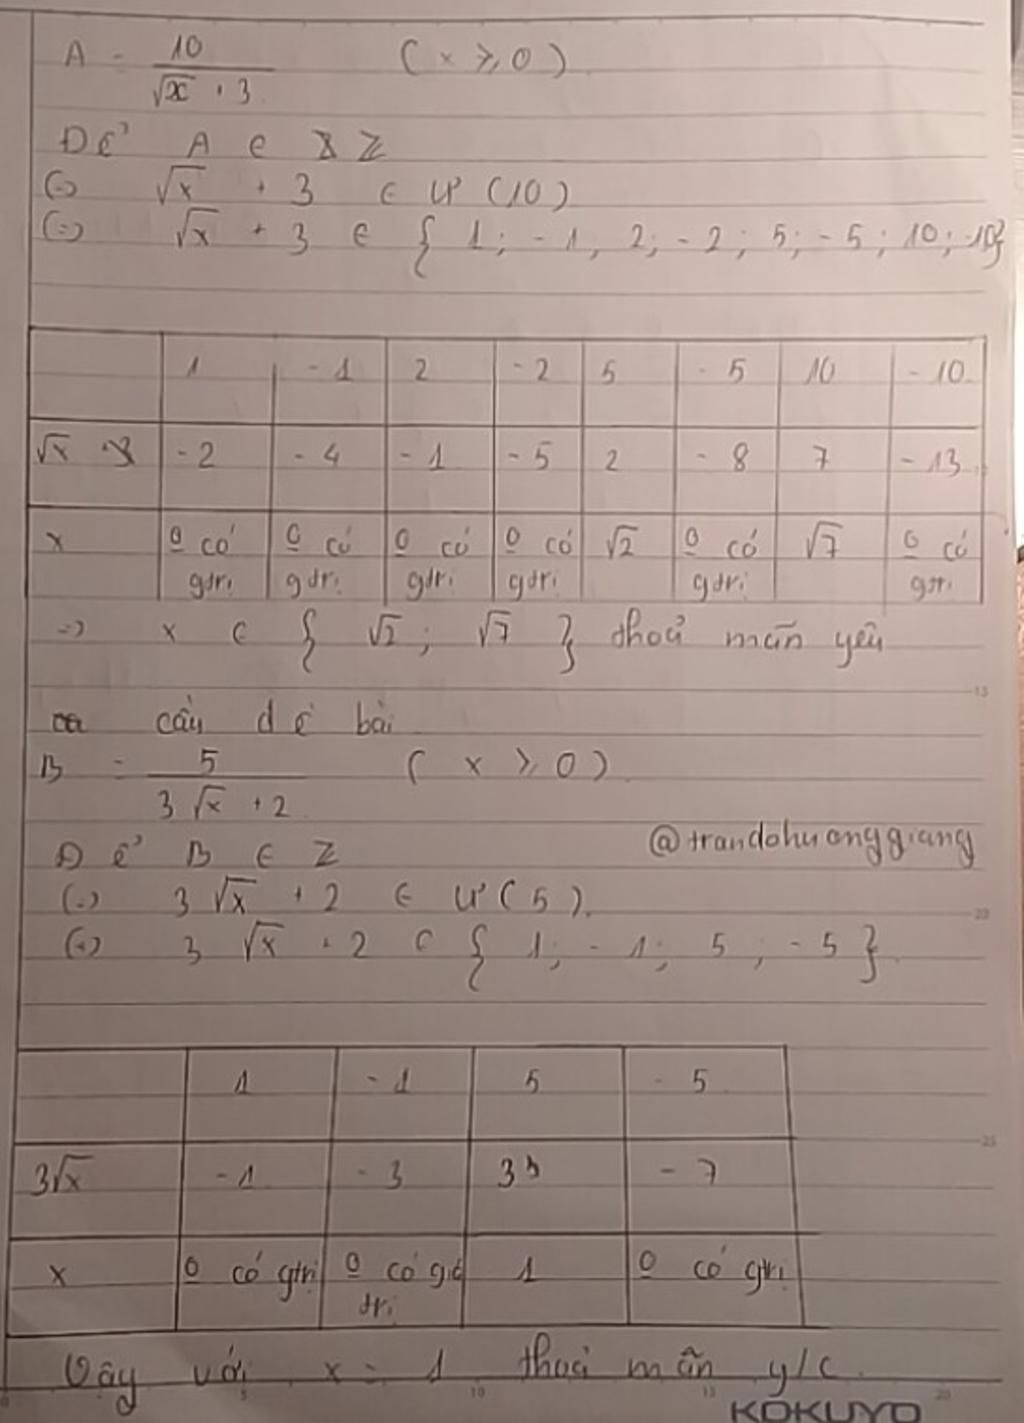 A = 10 / (√x + 3) ( x ⩾ 0 )
Để A ∈ Z
(=) √x + 3 ∈ Ư (10)
(=) √x + 3 ∈ { 1; -1, 2; -2; 5; -5; 10; -10}
1 | -1 | 2 | -2 | 5 | -5 | 10 | -10
√x | -2 | -4 | -1 | -5 | 2 | -8 | 7 | -13
x | 0 có gtri | 0 có gtri | 0 có gtri | 0 có gtri | √2 | 0 có gtri | √7 | 0 có gtri
=> x ∈ { √2 ; √7 } thoả mãn yêu
cầu đề bài
B = 5 / (3√x + 2) ( x ⩾ 0 )
@trandohuonggiang
Để B ∈ Z
(=) 3√x + 2 ∈ Ư ( 5 ).
(=) 3√x + 2 ∈ { 1; -1; 5; -5 }
1 | -1 | 5 | -5
3√x | -1 | -3 | 3 | -7
x | 0 có gtri | 0 có giá trị | 1 | 0 có gtri
Vậy với x = 1 thoả mãn y/c
KOKUYO